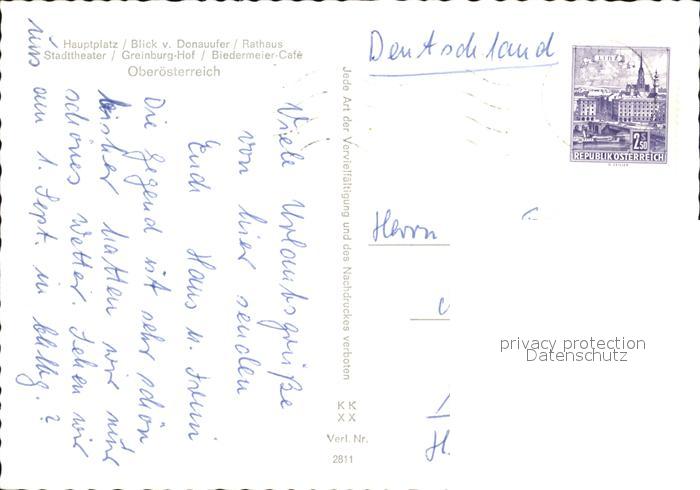 Hauptplatz / Blick v. Donauufer / Rathaus
Stadttheater / Greinburg-Hof / Biedermeier-Café
Oberösterreich
Viele Urlaubsgrüße
von hier senden
Euch Hans u.
Die Gegend ist sehr schön
bisher hatten wir nur
schönes Wetter. Sehen wir
uns am 1. Sept. in
Jede Art der Vervielfältigung und des Nachdruckes verboten
K K
X X
Verl. Nr.
2811
Deutschland
LINZ
2.50
REPUBLIK ÖSTERREICH
Herrn
H.
privacy protection
Datenschutz